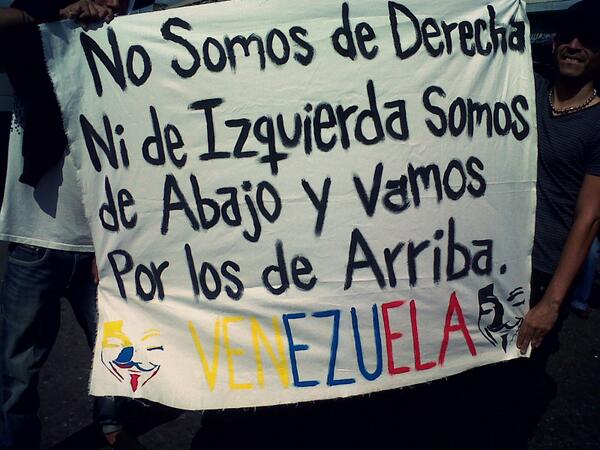 No Somos de Derecha
Ni de Izquierda Somos
de Abajo y Vamos
Por los de Arriba.
VENEZUELA